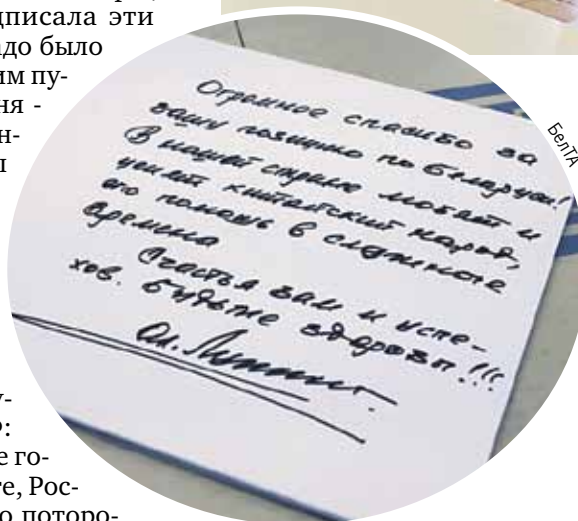 дписала эти
адо было
им пу-
ня -
н-
ы
у-
Ф:
е го-
те, Рос-
о поторо-
Огромное спасибо за
вашу позицию по Беларуси!
В нашей стране любят и
ценят китайский народ,
его помощь в сложные
времена
Счастья вам и успе-
хов. Будьте здоровы!!!
Ал.
БелТА